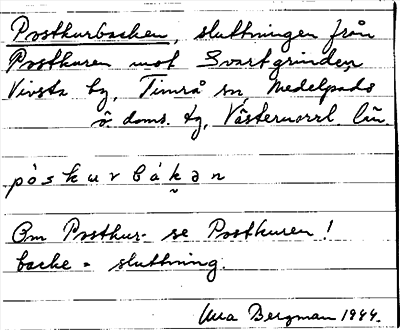 Posthurbacken, sluttningen från
Posthuren mot Svartgrinden
Vivsta by, Timrå sn, Medelpads
ö doms. tg, Västernorrl län.
pòskurbákən
Om Posthur- se Posthuren!
backe = sluttning.
Bergman 1944.